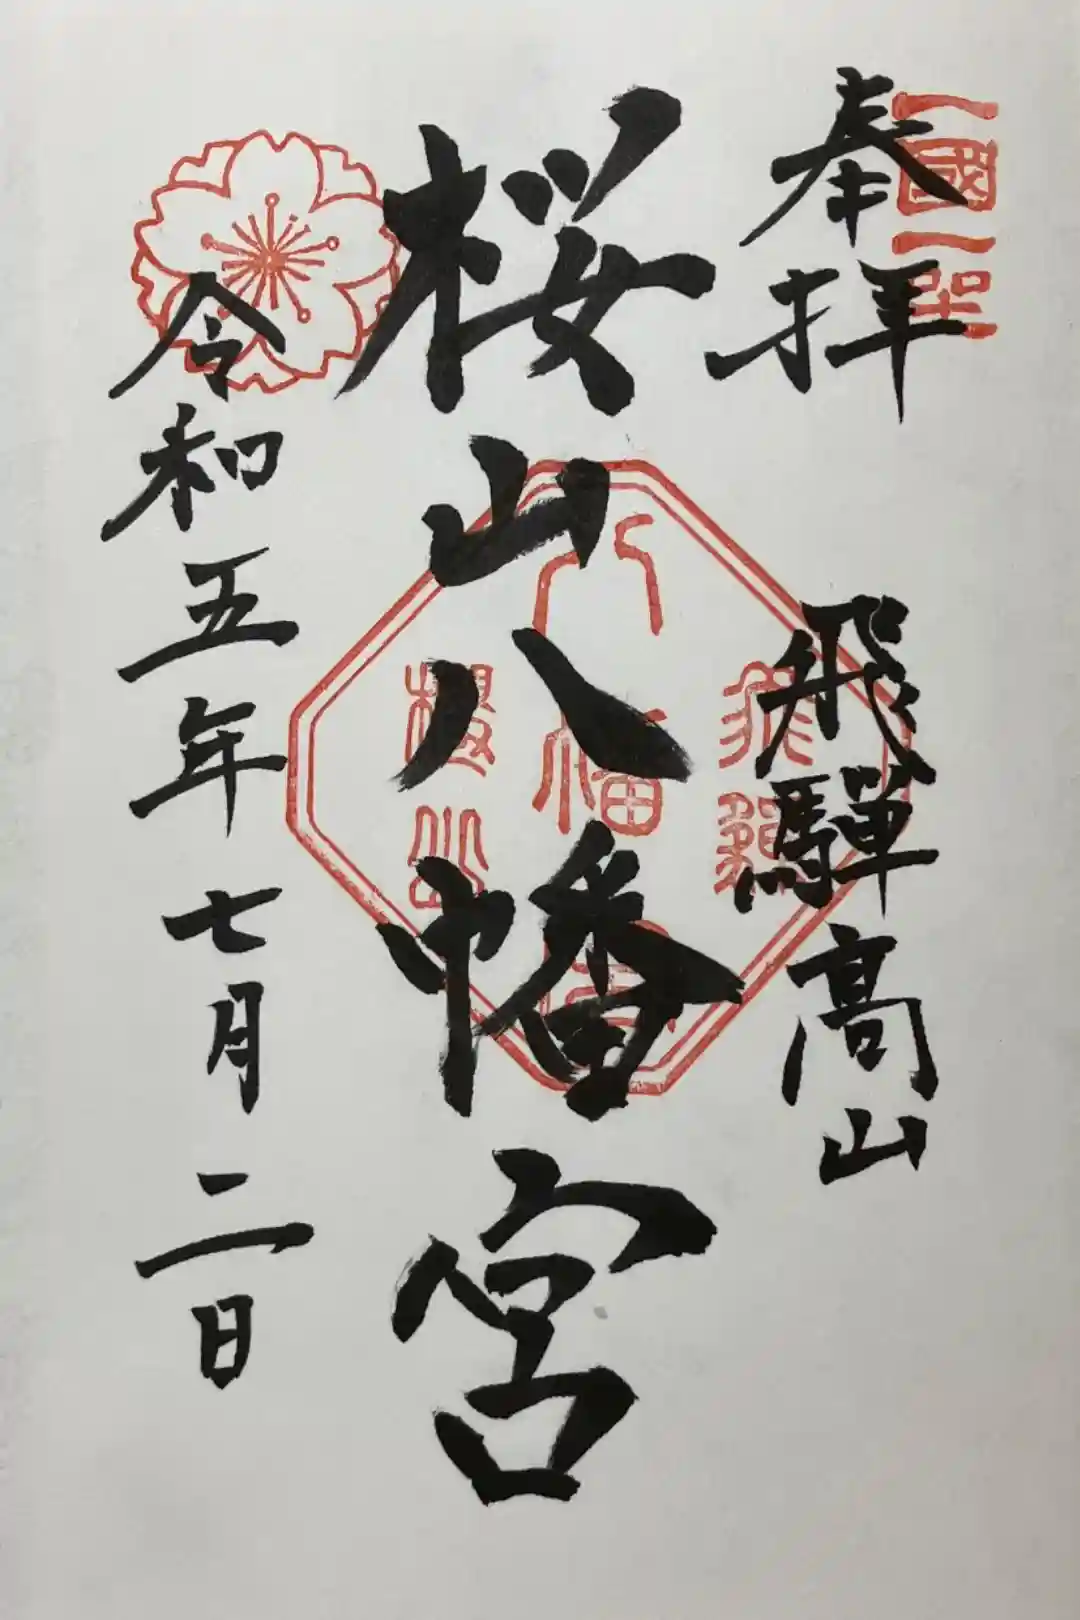 奉拝
飛騨高山
桜山八幡宮
令和五年七月二日
一國一社
八幡宮
飛騨
櫻山